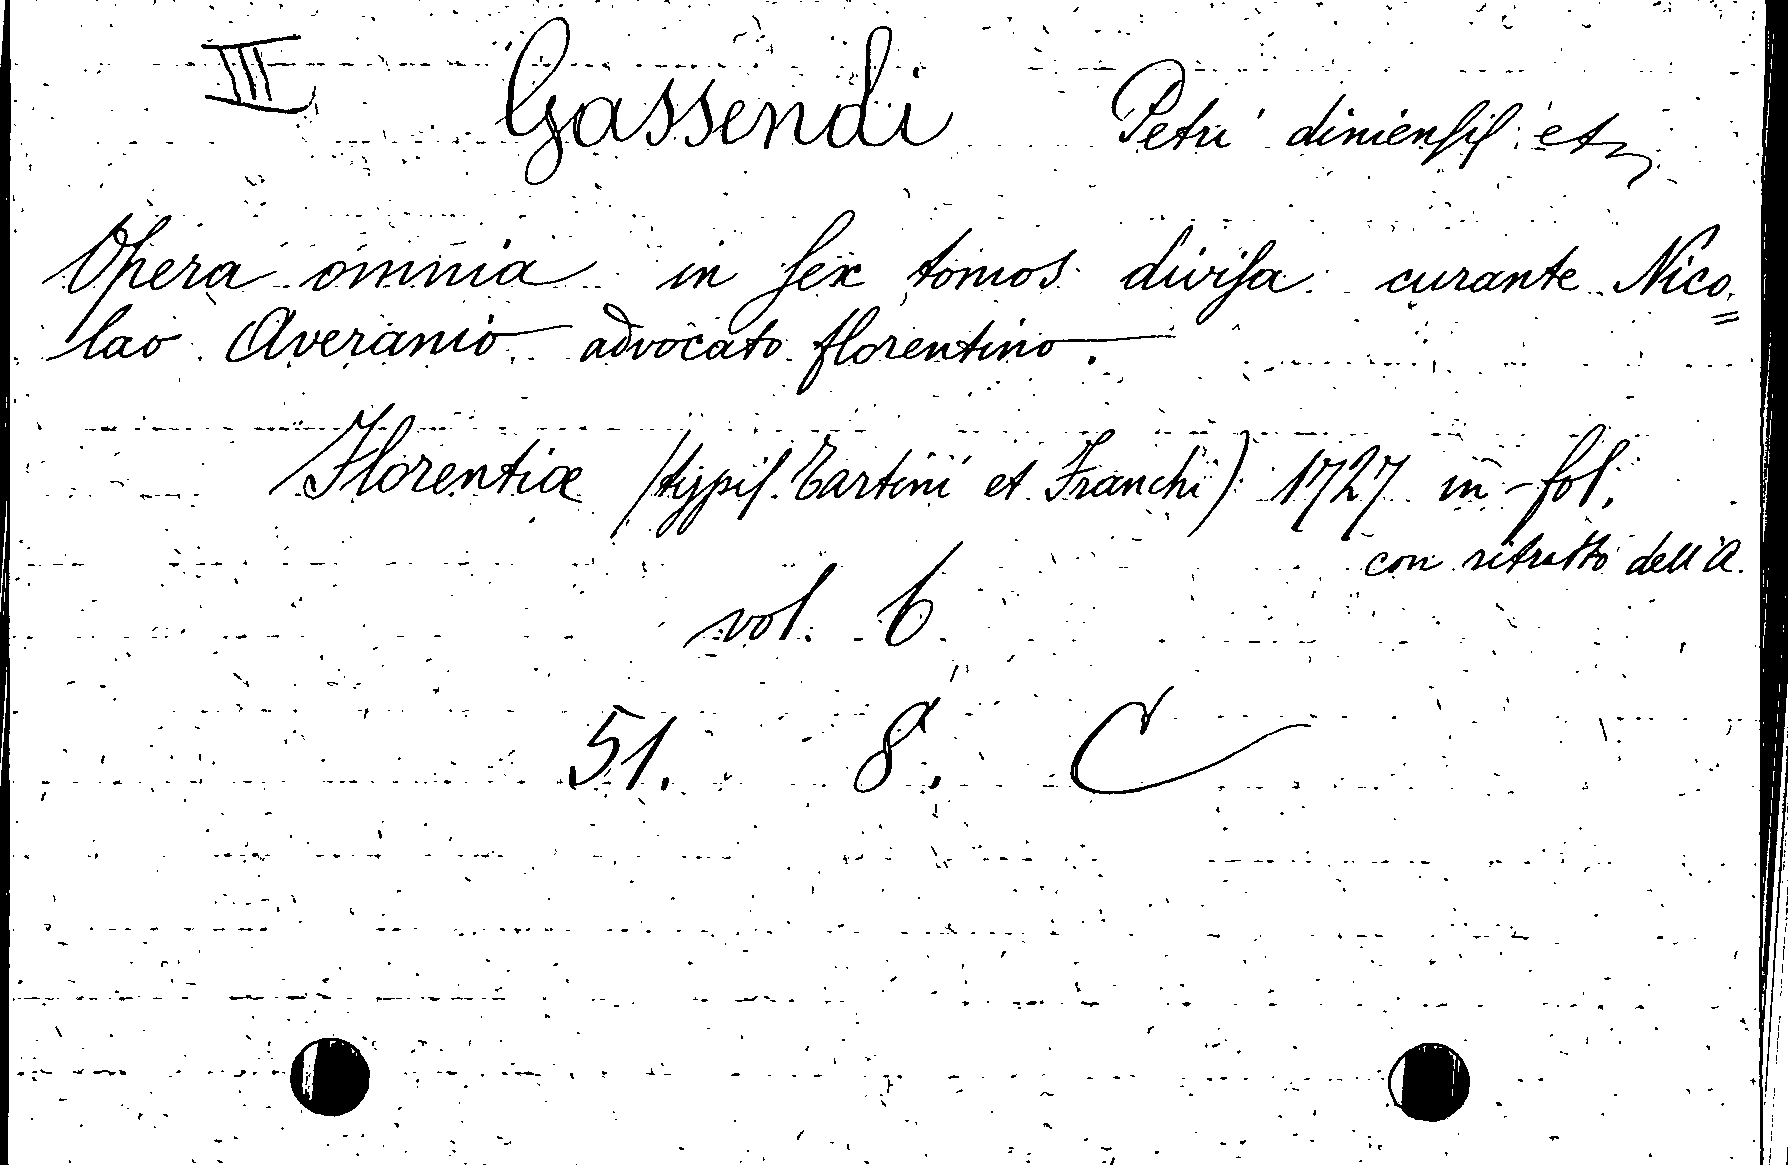 III Gassendi Petri diniensis etc
Opera omnia in sex tomos divisa curante Nico=
lao Averanio advocato florentino.
Florentiae (typis Tartini et Franchi) 1727 in-fol.
con ritratto dell'A.
vol. 6
51. 8. C